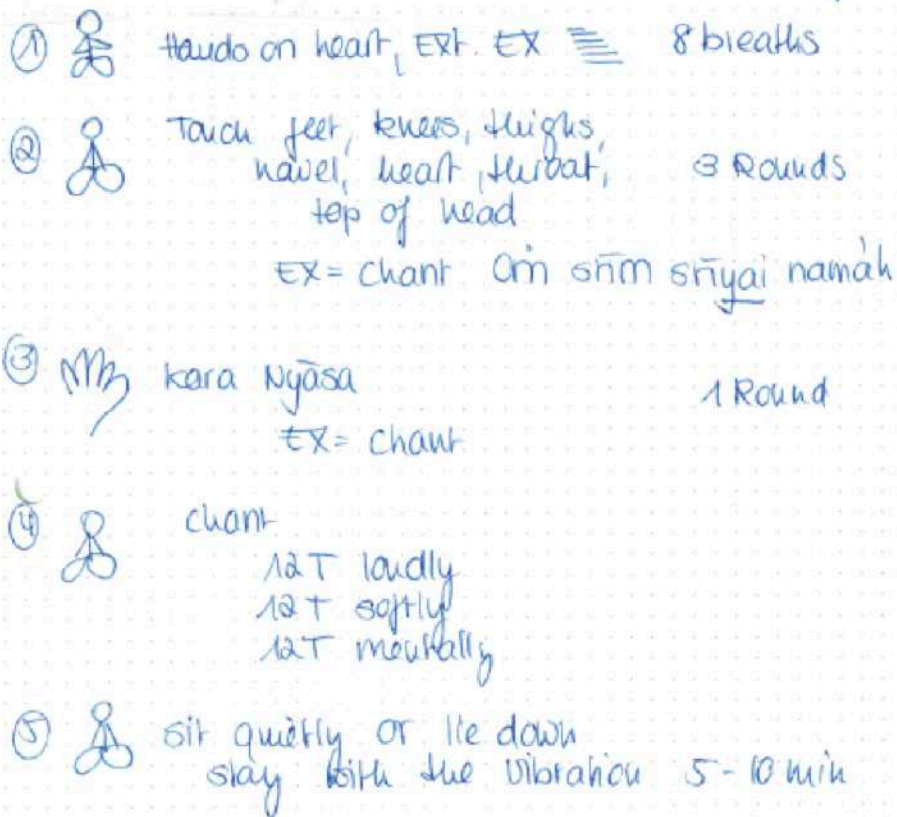 ① Hands on heart, Ext. EX 8 breaths
② Touch feet, knees, thighs,
navel, heart, throat, 3 Rounds
top of head
EX = chant Oṁ śrīm śrīyai namáh
③ kara Nyāsa 1 Round
EX = chant
④ chant
12T loudly
12T softly
12T mentally
⑤ sit quietly or lie down
stay with the vibration 5-10 min